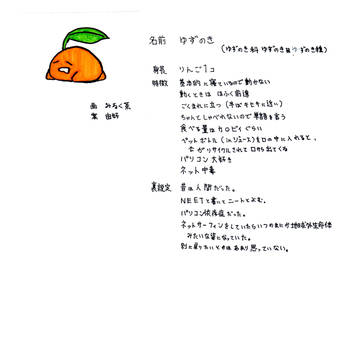 名前 ゆずのき
(ゆずのき科 ゆずのき目 ゆずのき種)
身長 りんご1コ
特徴 基本的に寝ているので動かない
動くときは ほふく前進
ごくまれに立つ (手はキセキに近い)
ちゃんとしゃべれないので単語を言う
食べる量はカロピィぐらい
ペットボトル (inジュース)を口の中に入れると、
リサイクルされて口から出てくる
パソコン大好き
ネット中毒
画 みるく茶
案 由師
裏設定 昔は人間だった。
NEETと書いてニートとよむ。
パソコン依存症だった。
ネットサーフィンをしていたらいつのまにか地球外生命体
みたいな姿になっていた。
別に戻りたいとかはあまり思っていない。